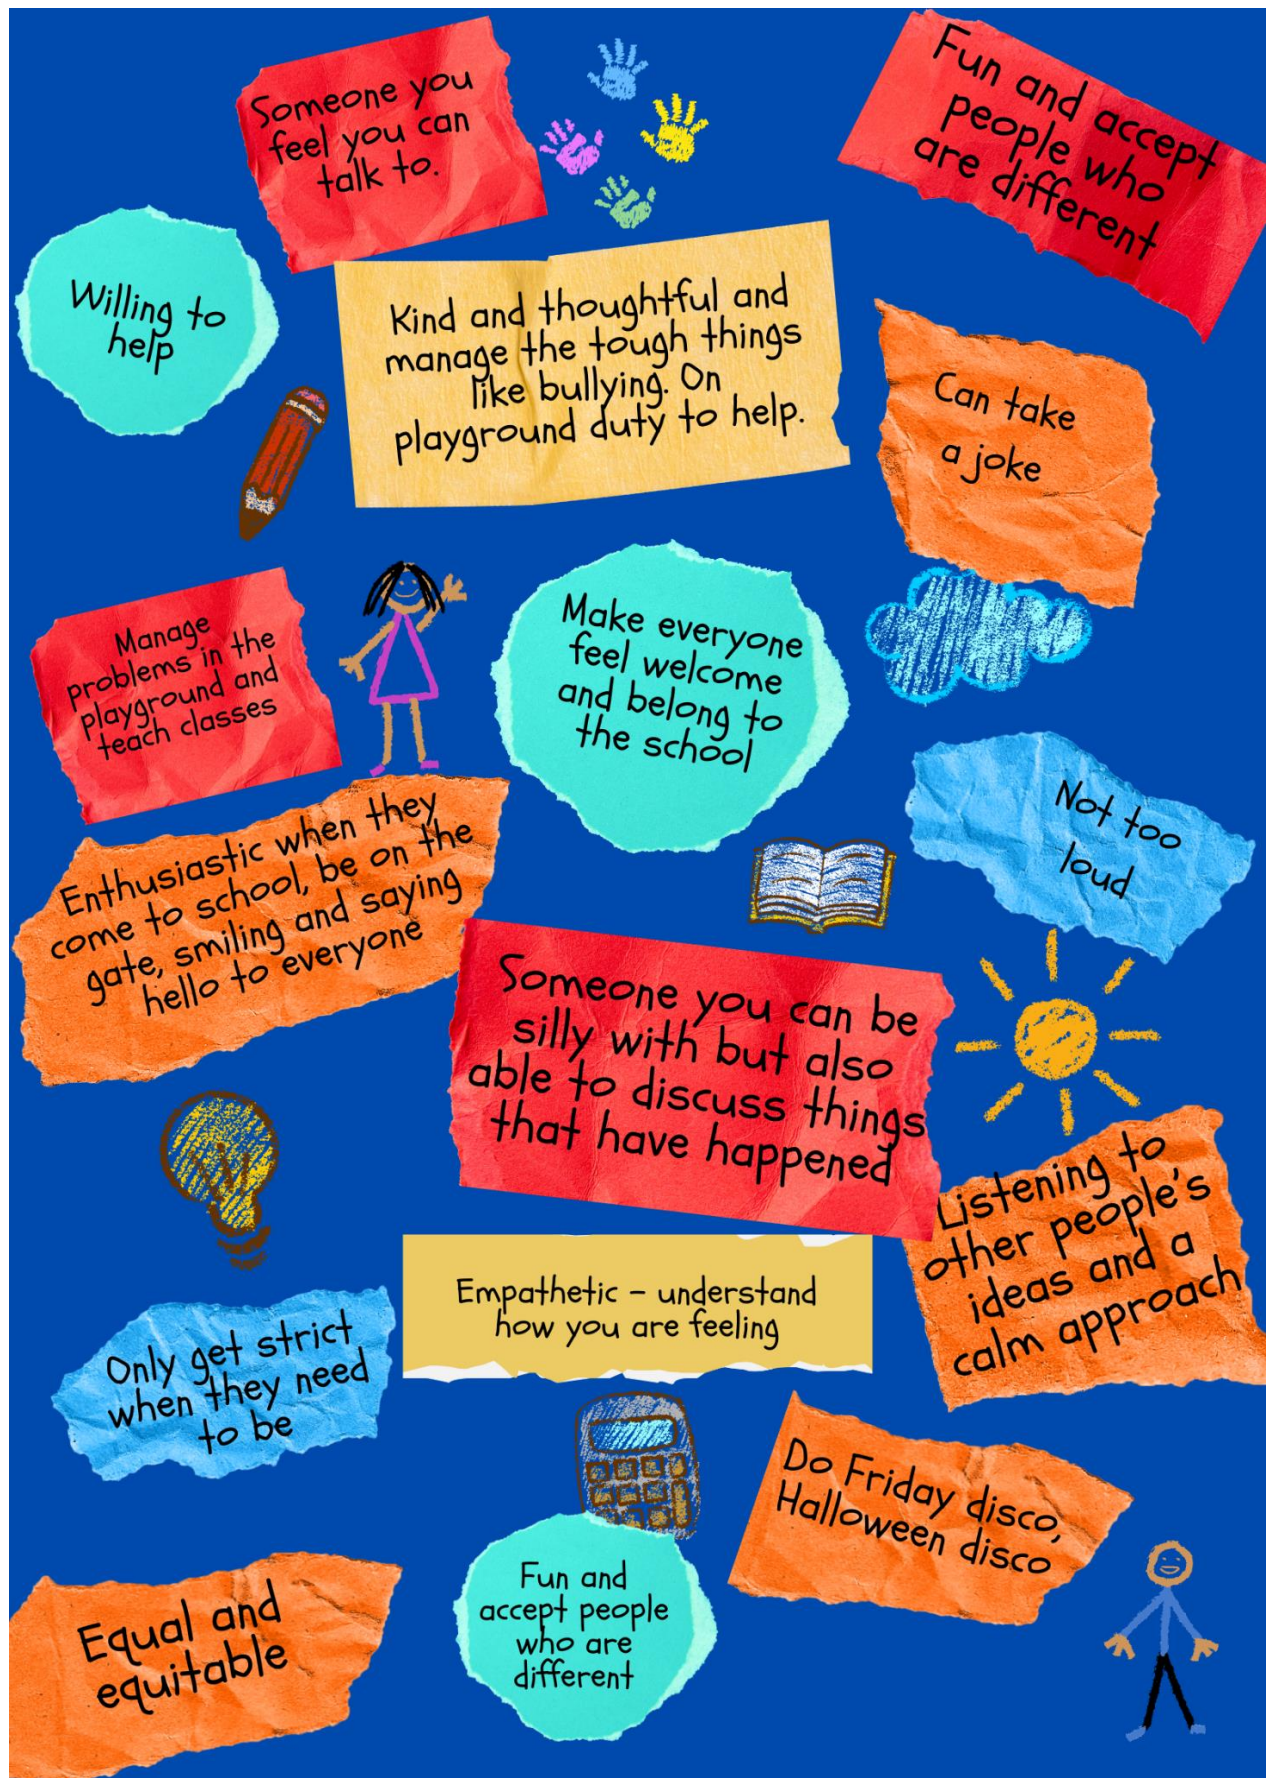 Someone you
feel you can
talk to.
Fun and accept
people who
are different
Willing to
help
Kind and thoughtful and
manage the tough things
like bullying. On
playground duty to help.
Can take
a joke
Manage
problems in the
playground and
teach classes
Make everyone
feel welcome
and belong to
the school
Not too
loud
Enthusiastic when they
come to school, be on the
gate, smiling and saying
hello to everyone
Someone you can be
silly with but also
able to discuss things
that have happened
Listening to
other people's
ideas and a
calm approach
Empathetic – understand
how you are feeling
Only get strict
when they need
to be
Do Friday disco,
Halloween disco
Fun and
accept people
who are
different
Equal and
equitable